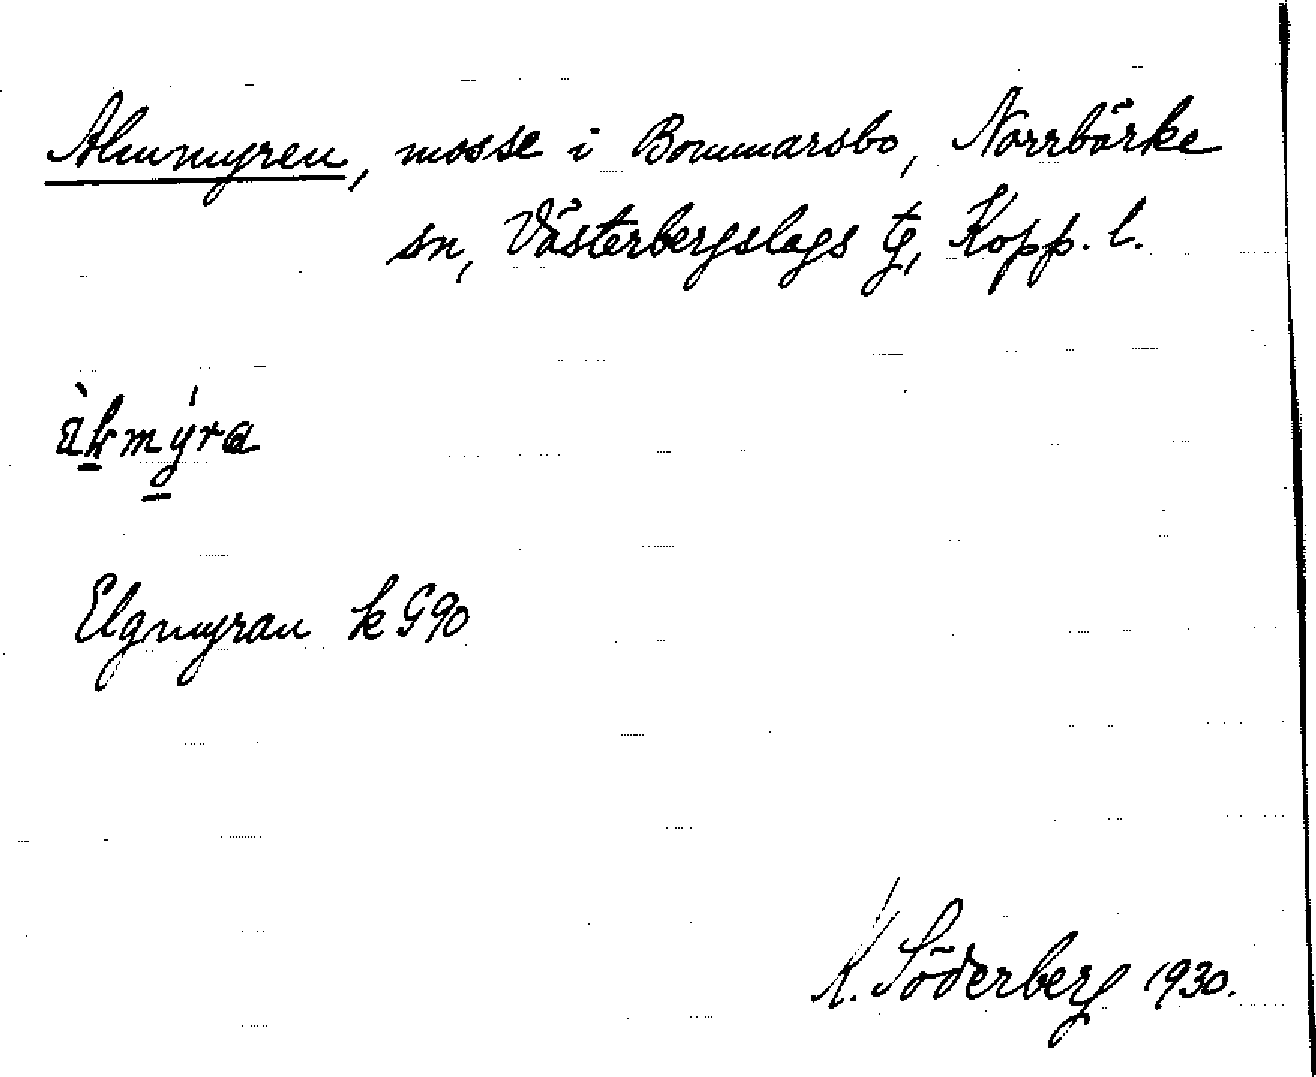 Almmyren, mosse i Bommarsbo, Norrbärke
sn, Västerbergslags tg, Kopp. l.
Elgmyran k G90
K. Söderberg 1930.